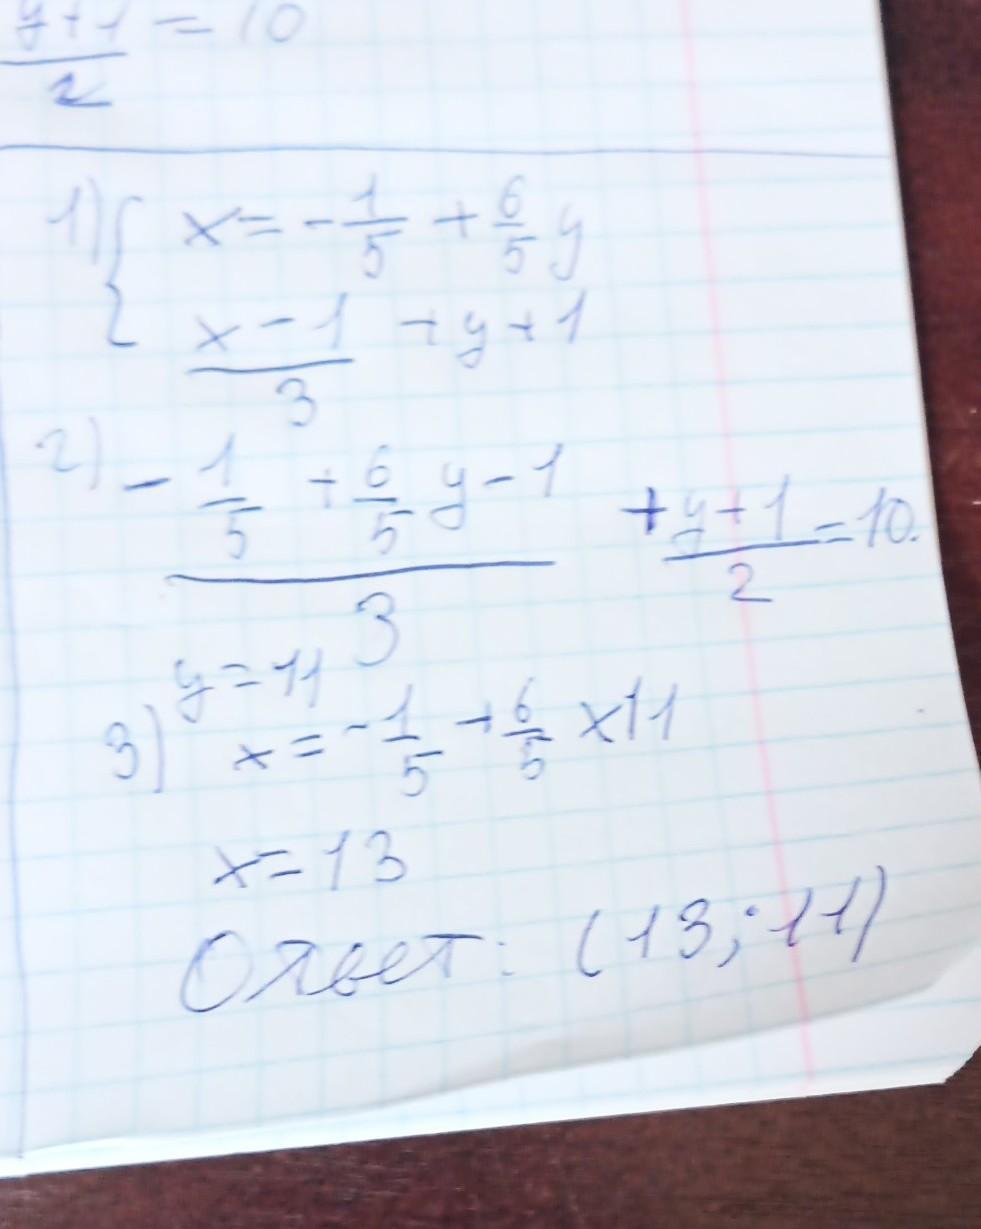 y+1/2 = 10
1) { x = -1/5 + 6/5 y
x-1/3 + y+1
2) (-1/5 + 6/5 y - 1)/3 + y+1/2 = 10.
y = 11
3) x = -1/5 + 6/5 x11
x = 13
Ответ: (13; 11)